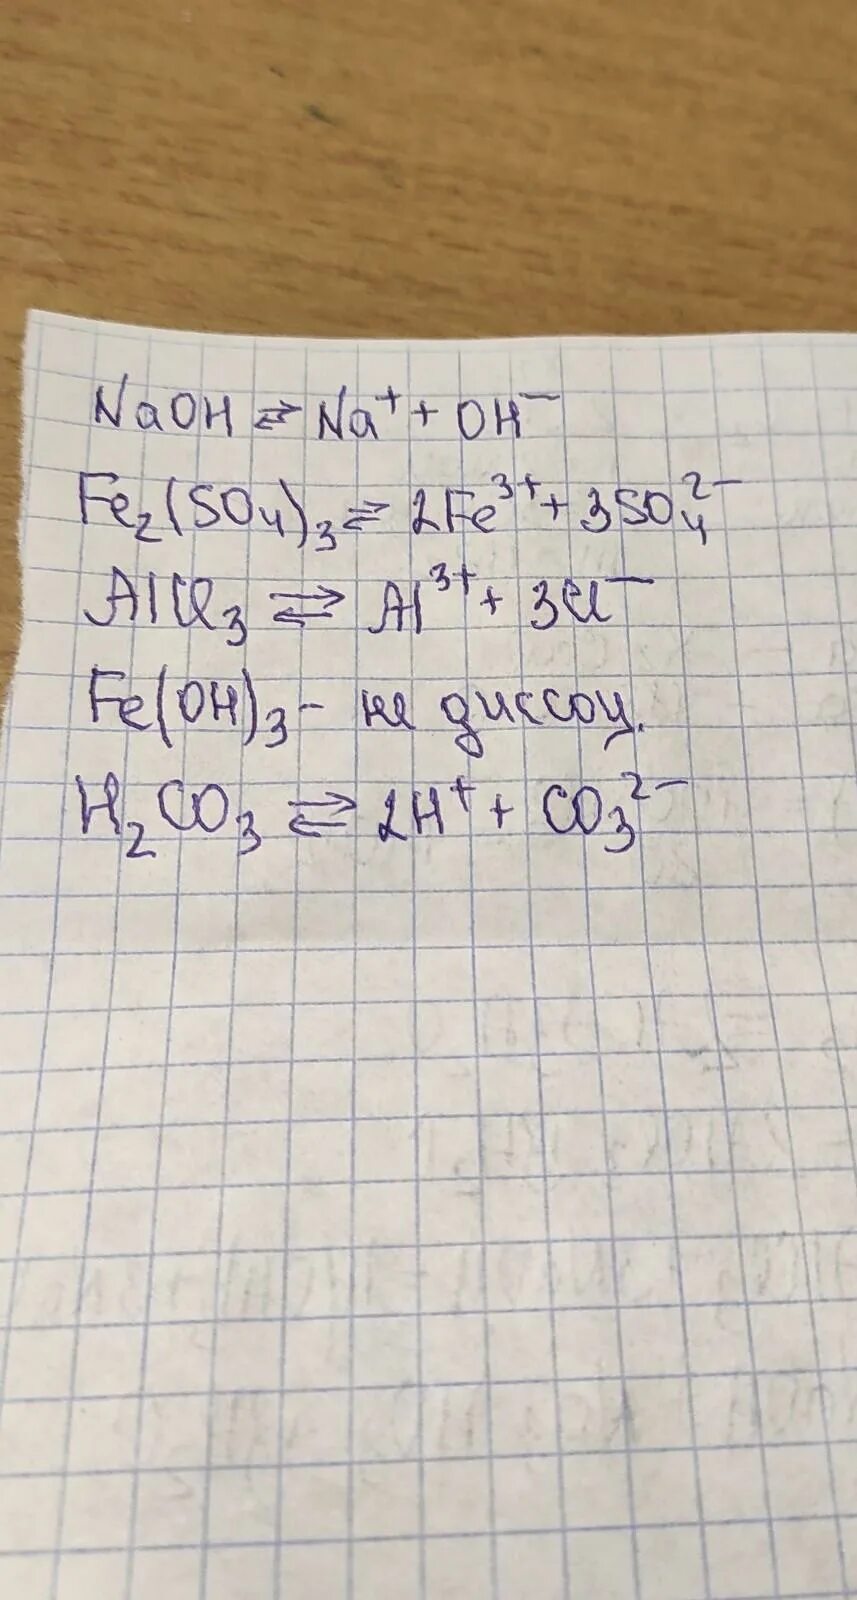 NaOH ⇄ Na⁺ + OH⁻
Fe₂(SO₄)₃ ⇄ 2Fe³⁺ + 3SO₄²⁻
AlCl₃ ⇄ Al³⁺ + 3Cl⁻
Fe(OH)₃ - не диссоц.
H₂CO₃ ⇄ 2H⁺ + CO₃²⁻